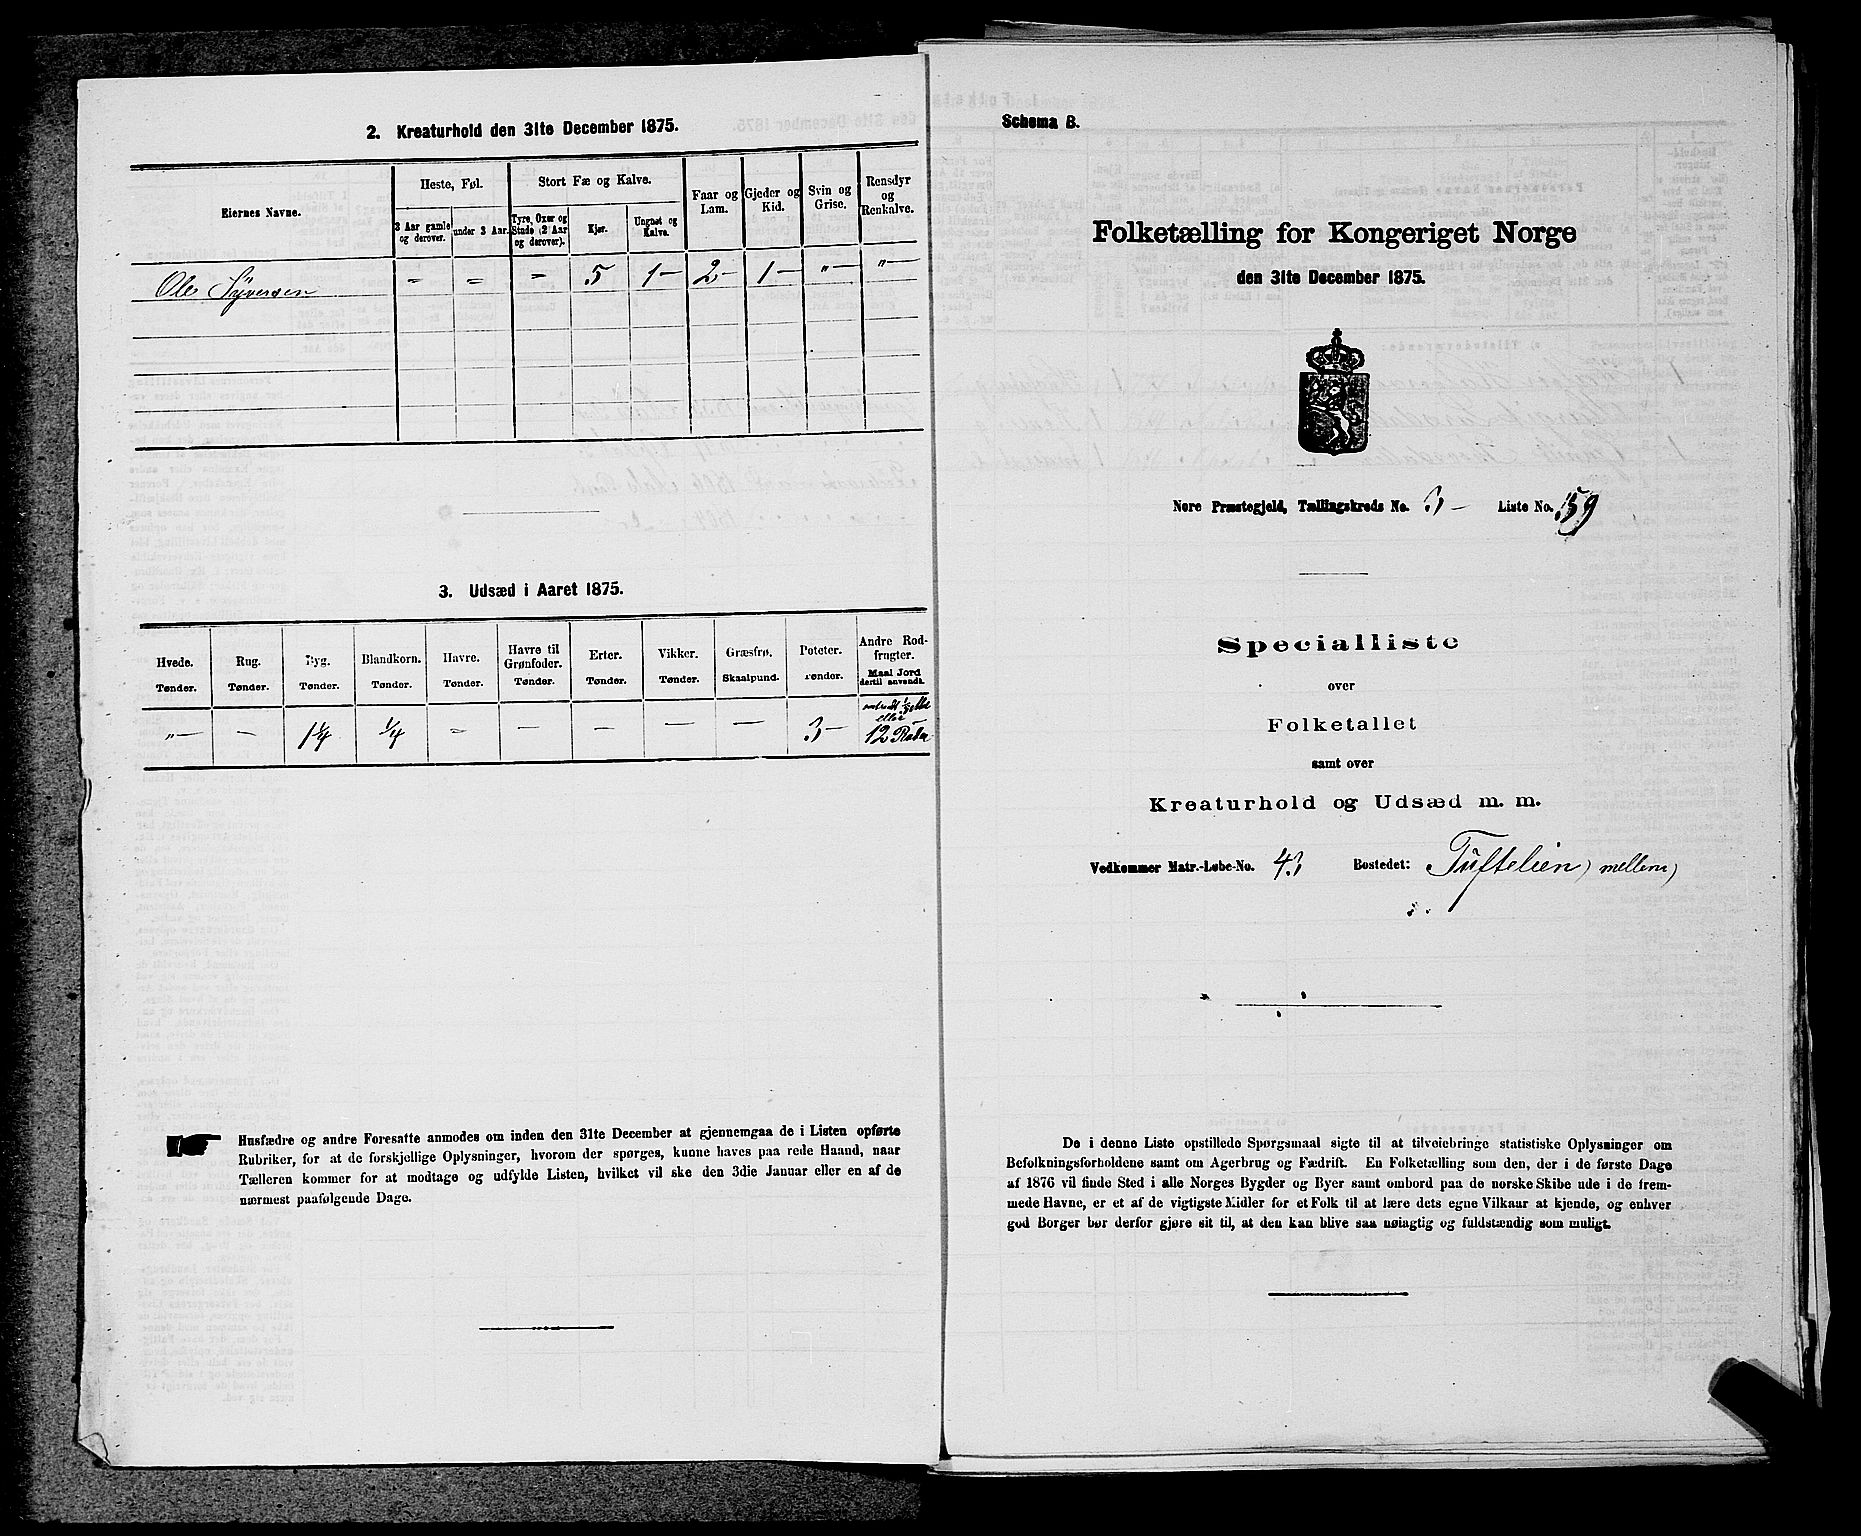 2. Kreaturhold den 31te December 1875.
Eiernes Navne.
Heste, Føl.
Stort Fæ og Kalve.
Faar og Lam.
Gjeder og Kid.
Svin og Grise.
Rensdyr og Renkalve.
3 Aar gamle og derover.
under 3 Aar.
Tyre, Oxer og Stude (2 Aar og derover).
Kjør.
Ungnøt og Kalve.
Ole Syversen - - - 5 1- 2- 1- "- "-
3. Udsæd i Aaret 1875.
Hvede. Rug. Byg. Blandkorn. Havre. Havre til Grønfoder. Erter. Vikker. Græsfrø. Poteter. Andre Rodfrugter.
Tønder. Tønder. Tønder. Tønder. Tønder. Tønder. Tønder. Tønder. Skaalpund. Tønder. Maal Jord dertil anvendt.
"- - 1¼ ¼ - - - - - 3- eller 12 Roder
Husfædre og andre Foresatte anmodes om inden den 31te December at gjennemgaa de i Listen opførte
Rubriker, for at de forskjellige Oplysninger, hvorom der spørges, kunne haves paa rede Haand, naar
Tælleren kommer for at modtage og udfylde Listen, hvilket vil ske den 3die Januar eller en af de
nærmest paafølgende Dage.
Schema B.
Folketælling for Kongeriget Norge
den 31te December 1875.
Nore Præstegjeld, Tællingskreds No. 3- Liste No. 159
Specialliste
over
Folketallet
samt over
Kreaturhold og Udsæd m. m.
Vedkommer Matr.-Løbe-No. 43 Bostedet: Tüftelien) mellem)
De i denne Liste opstillede Spørgsmaal sigte til at tilveiebringe statistiske Oplysninger om
Befolkningsforholdene samt om Agerbrug og Fædrift. En Folketælling som den, der i de første Dage
af 1876 vil finde Sted i alle Norges Bygder og Byer samt ombord paa de norske Skibe ude i de frem-
mede Havne, er et af de vigtigste Midler for et Folk til at lære dets egne Vilkaar at kjende, og enhver
god Borger bør derfor gjøre sit til, at den kan blive saa nøiagtig og fuldstændig som muligt.